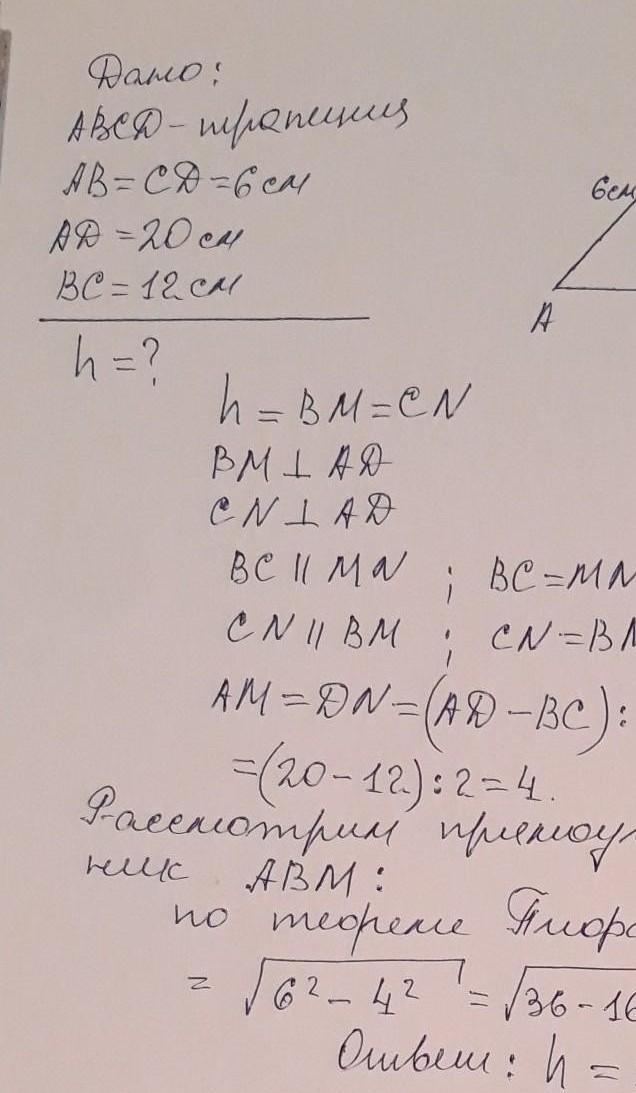 Дано:
ABCD - трапеция
AB = CD = 6 см
AD = 20 см
BC = 12 см
6см
A
h = ?
h = BM = CN
BM ⊥ AD
CN ⊥ AD
BC || MN ; BC = MN
CN || BM ; CN = BM
AM = DN = (AD - BC) :
= (20 - 12) : 2 = 4.
Рассмотрим прямоуг
ник ABM:
по теореме Пифаго
= √6² - 4² = √36 - 16
Ответ: h =